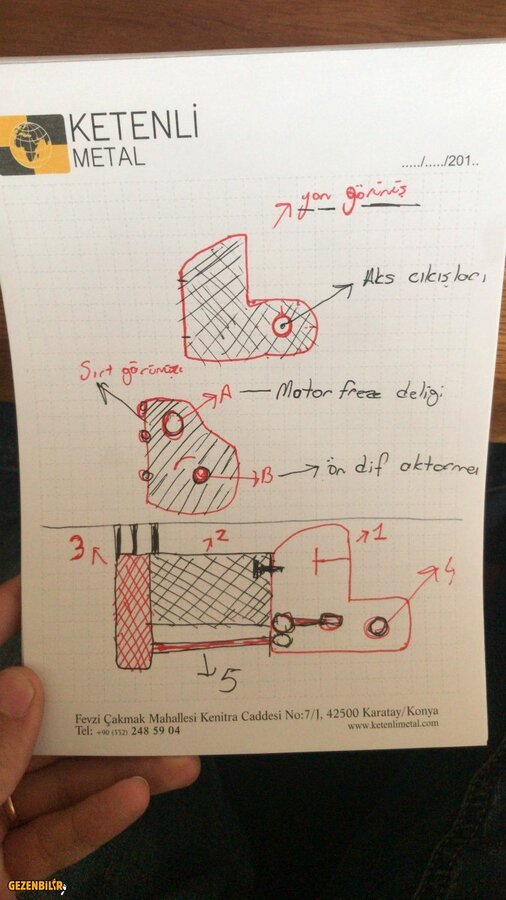 KETENLİ
METAL
...../...../201..
yan görünüş
Aks çıkışları
Sırt görünüşü
A
Motor freze deligi
B
ön dif aktarması
3
2
1
4
5
Fevzi Çakmak Mahallesi Kenitra Caddesi No:7/J, 42500 Karatay/Konya
Tel: +90 (532) 248 59 04
www.ketenlimetal.com
GEZENBİLİR